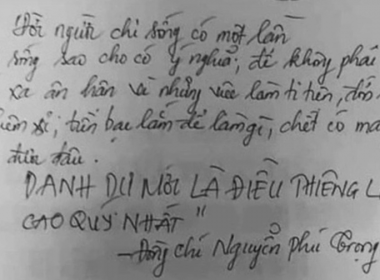 "Đời người chỉ sống có một lần
sống sao cho có ý nghĩa, để không phải
xa ân hận vì những việc làm ti tiện, đớn
hèn xỉ, tiền bạc lắm để làm gì, chết có ma
đưa đâu.
DANH DỰ MỚI LÀ ĐIỀU THIÊNG L
CAO QUÝ NHẤT"
- Đồng chí Nguyễn Phú Trọng